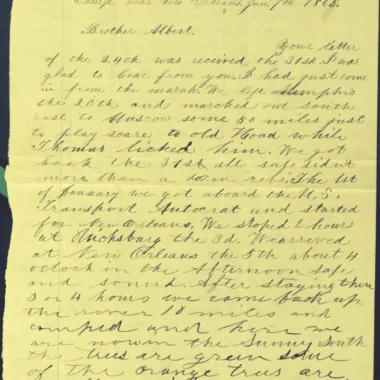 Camp near New Orleans Jan 9th 1865.
Brother Albert.
Your letter
of the 24th was recived the 31st. I was
glad to hear from you. I had just come
in from the march. We left Memphis
the 20th and marched out south
east to Moscow some 50 miles just
to play scare to old Hood while
Thomas licked him. We got
back the 31st all safe
more than a dozen rebs. The 1st
of January we got aboard the U.S.
Transport Autocrat and started
for New Orleans. We stoped 6 hours
at Vicksburg the 3d. We arrived
at New Orleans the 5th about 4
oclock in the Afternoon safe
and sound. After staying there
3 or 4 hours we came back up
the river 18 miles and
camped and here we
are now in the Sunny South
the trees are green some
of the orange trees are